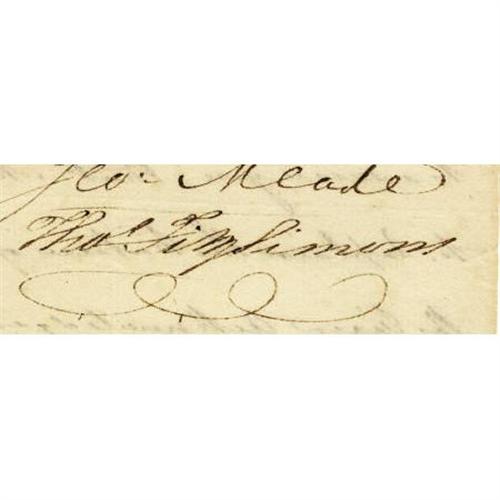 Geo. Meade
Thos. FitzSimons